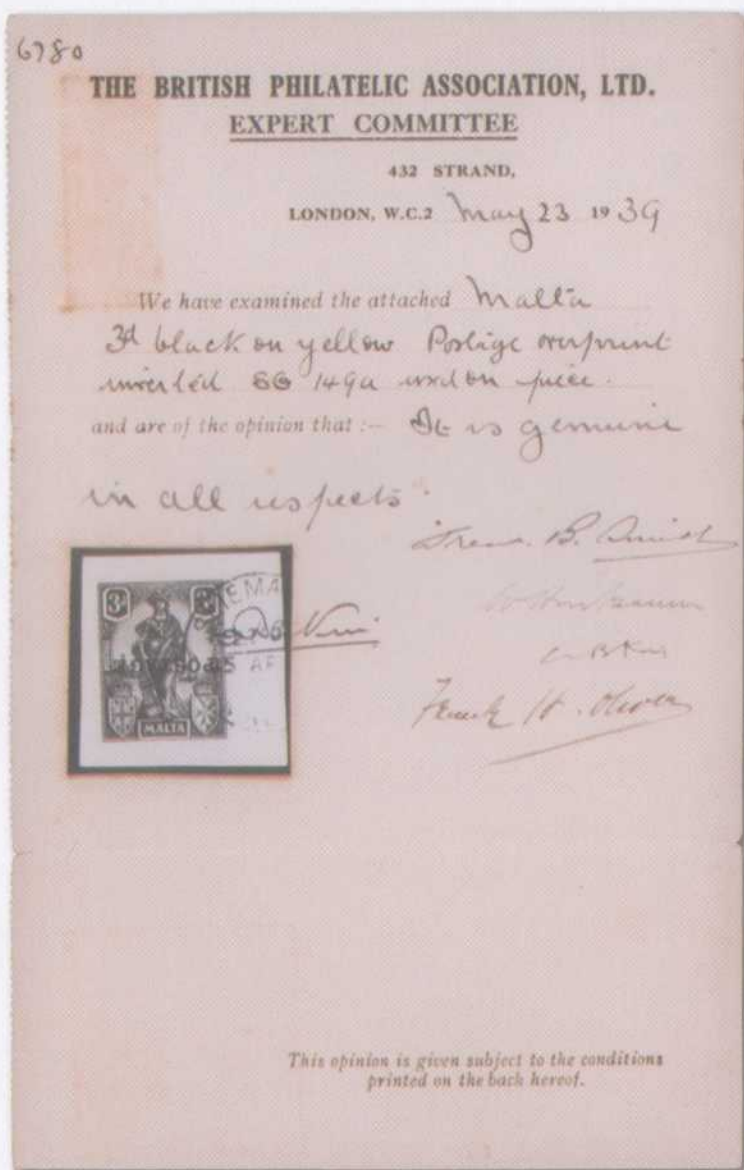 6780
THE BRITISH PHILATELIC ASSOCIATION, LTD.
EXPERT COMMITTEE
432 STRAND,
LONDON, W.C.2 May 23 1939
We have examined the attached Malta
3d black on yellow Postage overprint
inverted SG 149a used on piece.
and are of the opinion that :— It is genuine
in all respects.
B.
3d
EMA
AP
MALTA
Frank H. Oliver
This opinion is given subject to the conditions
printed on the back hereof.